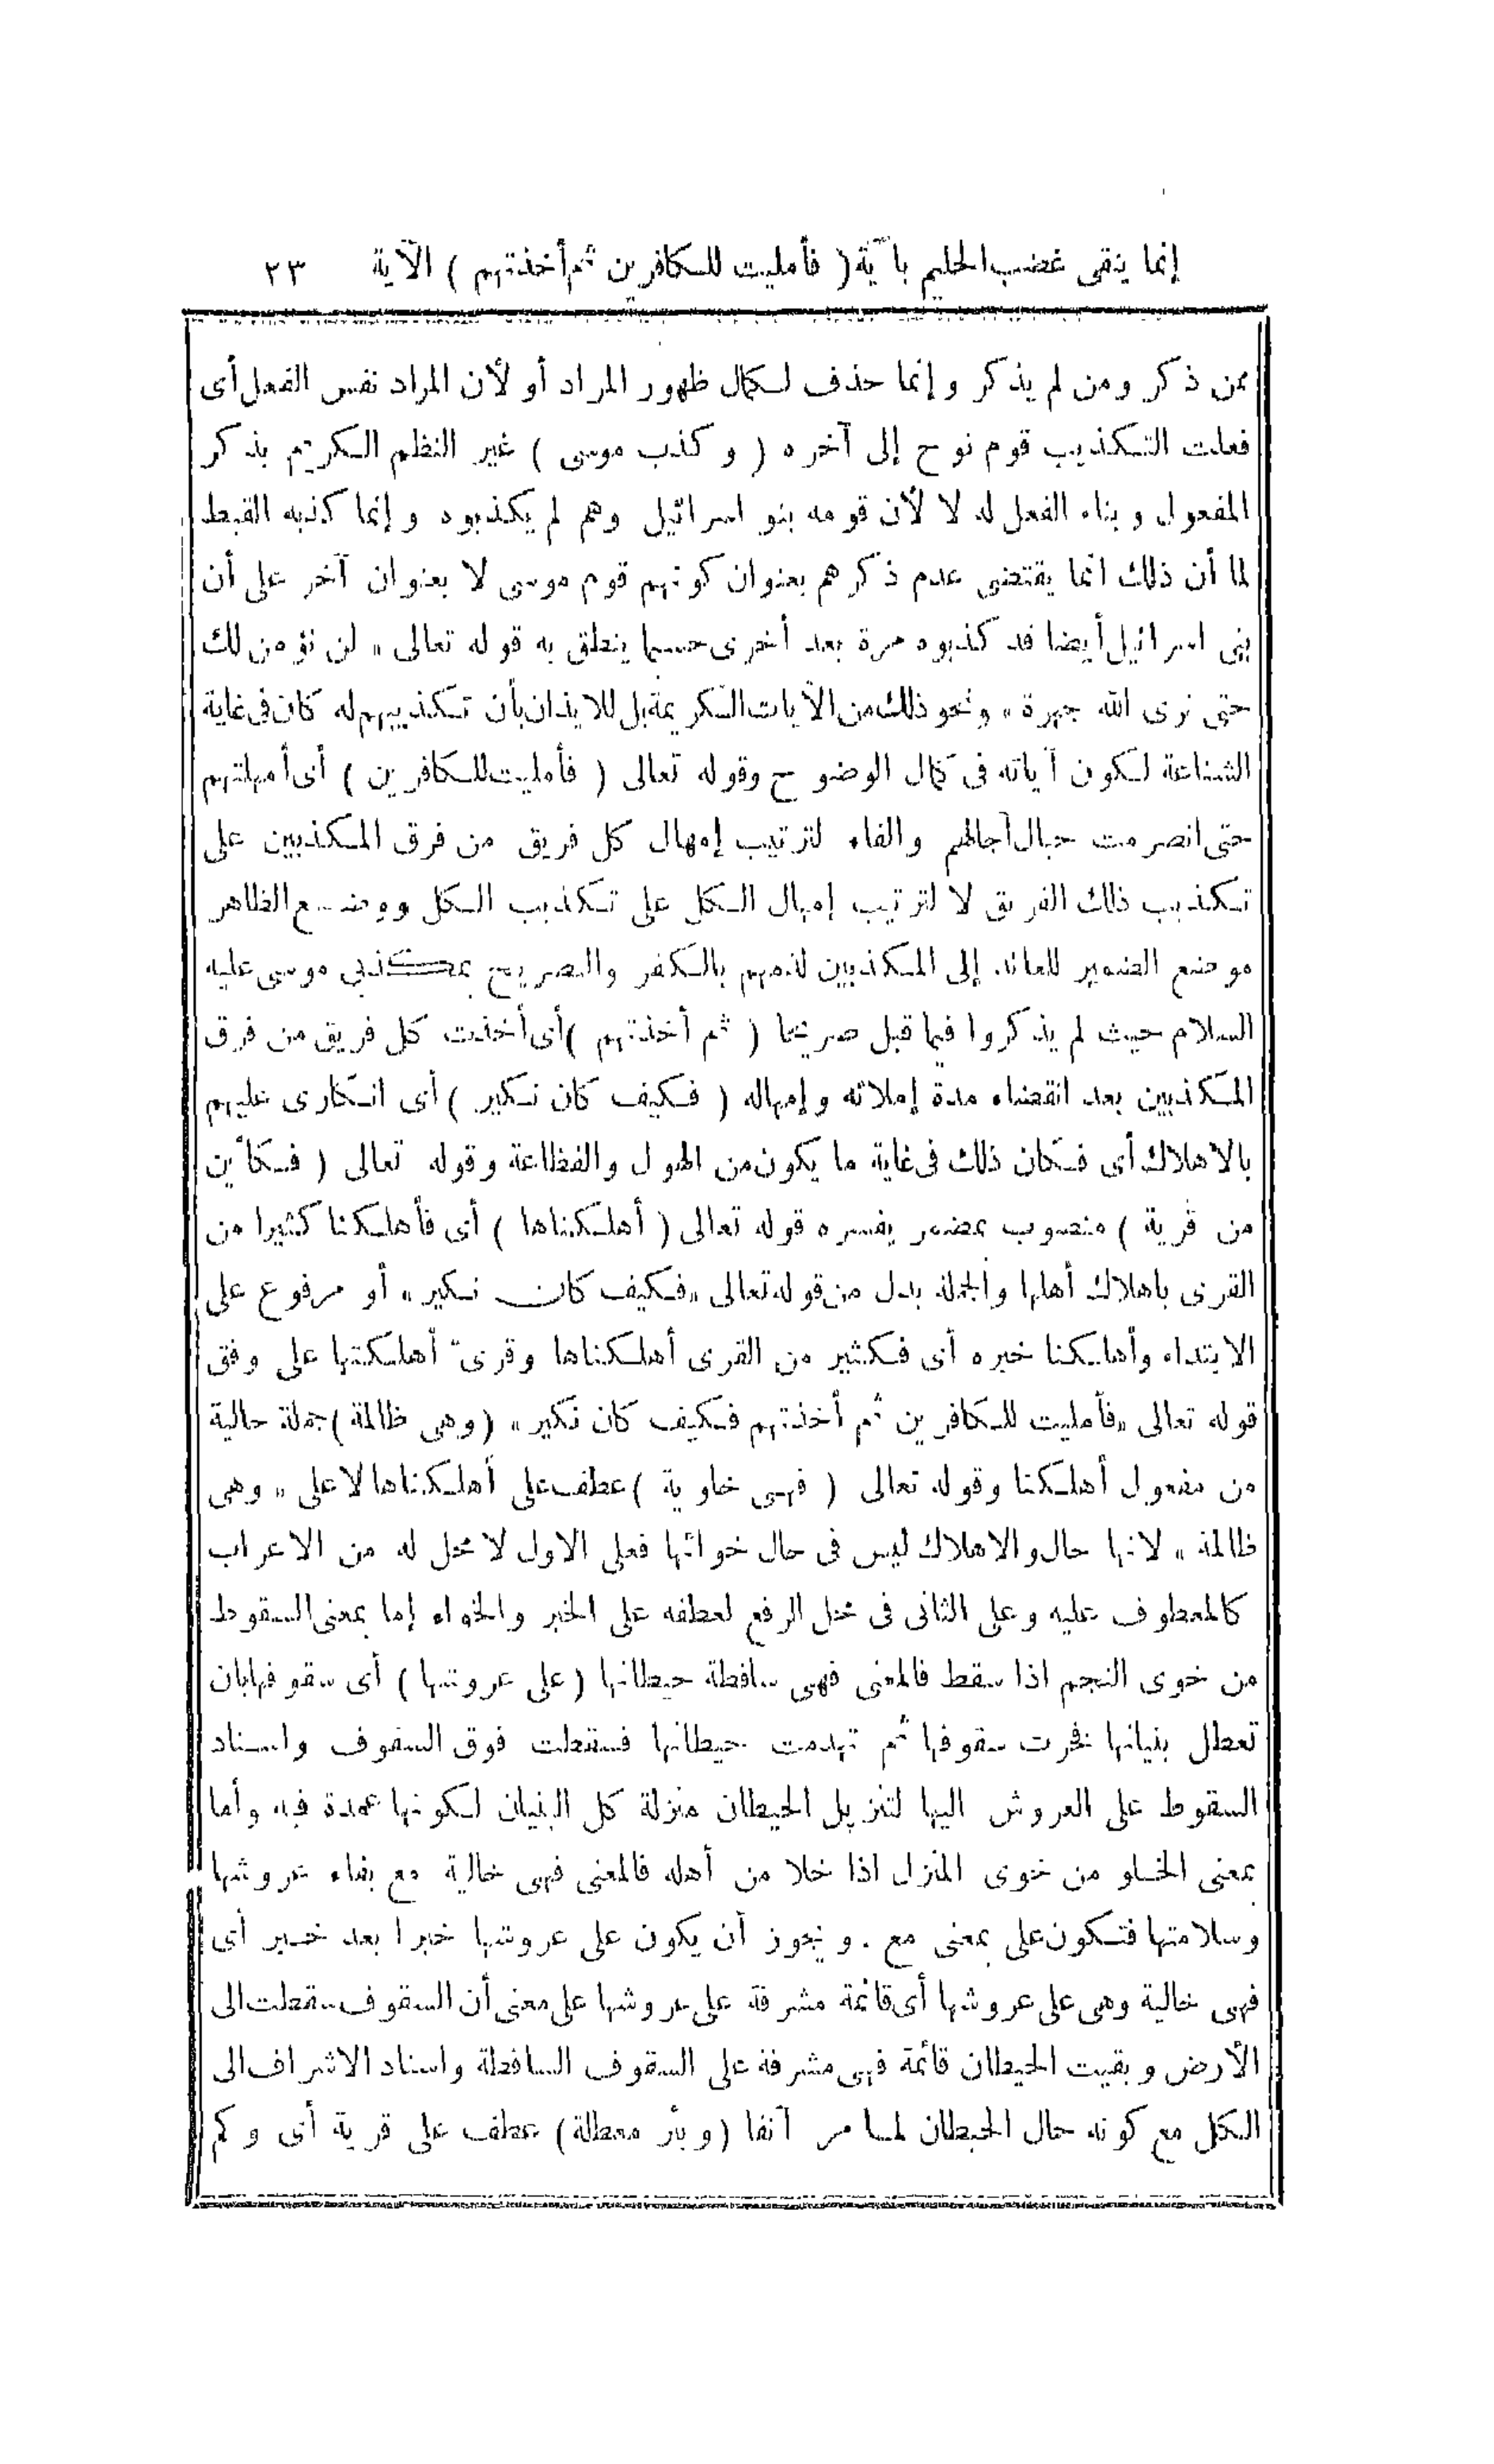 إنما يتقى غضب الحليم بآية ( فأمليت للكافرين ثم أخذتهم ) الآية ٢٣
ممن ذكر ومن لم يذكر وإنما حذف لكمال ظهور المراد أو لأن المراد نفس الفعل أى
فعلت التكذيب قوم نوح إلى آخره ( وكذب موسى ) غير النظم الكريم بذكر
المفعول وبناء الفعل له لا لأن قومه بنو اسرائيل وهم لم يكذبوه وإنما كذبه القبط
لما أن ذلك انما يقتضى عدم ذكرهم بعنوان كونهم قوم موسى لا بعنوان آخر على أن
بنى اسرائيل أيضا قد كذبوه مرة بعد أخرى حسبما ينطق به قوله تعالى « لن نؤمن لك
حتى نرى الله جهرة » ونحو ذلك من الآيات الكريمة بل للايذان بأن تكذيبهم له كان فى غاية
الشناعة لكون آياته فى كمال الوضوح وقوله تعالى ( فأمليت للكافرين ) أى أمهلتهم
حتى انصرمت حبال آجالهم والفاء لترتيب إمهال كل فريق من فرق المكذبين على
تكذيب ذلك الفريق لا لترتيب إمهال الكل على تكذيب الكل ووضع الظاهر
موضع الضمير العائد إلى المكذبين لذمهم بالكفر والتصريح بمكذبى موسى عليه
السلام حيث لم يذكروا فيما قبل صريحا ( ثم أخذتهم ) أى أخذت كل فريق من فرق
المكذبين بعد انقضاء مدة إملائه وإمهاله ( فكيف كان نكير ) أى انكارى عليهم
بالاهلاك أى فكان ذلك فى غاية ما يكون من الهول والفظاعة وقوله تعالى ( فكأين
من قرية ) منصوب بمضمر يفسره قوله تعالى ( أهلكناها ) أى فأهلكنا كثيرا من
القرى باهلاك أهلها والجملة بدل من قوله تعالى «فكيف كان نكير» أو مرفوع على
الابتداء وأهلكنا خبره أى فكثير من القرى أهلكناها وقرىء أهلكتها على وفق
قوله تعالى «فأمليت للكافرين ثم أخذتهم فكيف كان نكير» ( وهى ظالمة ) جملة حالية
من مفعول أهلكنا وقوله تعالى ( فهى خاوية ) عطف على أهلكناها لا على « وهى
ظالمة » لانها حال والاهلاك ليس فى حال خوائها فعلى الاول لا محل له من الاعراب
كالمعطوف عليه وعلى الثانى فى محل الرفع لعطفه على الخبر والخواء إما بمعنى السقوط
من خوى النجم اذا سقط فالمعنى فهى ساقطة حيطانها ( على عروشها ) أى سقوفها بان
تعطل بنيانها فخرت سقوفها ثم تهدمت حيطانها فسقطت فوق السقوف واسناد
السقوط على العروش اليها لتنزيل الحيطان منزلة كل البنيان لكونها عمدة فيه وأما
بمعنى الخلو من خوى المنزل اذا خلا من أهله فالمعنى فهى خالية مع بقاء عروشها
وسلامتها فتكون على بمعنى مع . ويجوز أن يكون على عروشها خبرا بعد خبر أى
فهى خالية وهى على عروشها أى قائمة مشرفة على عروشها على معنى أن السقوف سقطت الى
الأرض وبقيت الحيطان قائمة فهى مشرفة على السقوف الساقطة واسناد الاشراف الى
الكل مع كونه حال الحيطان لما مر آنفا ( وبئر معطلة ) عطف على قرية أى وكم